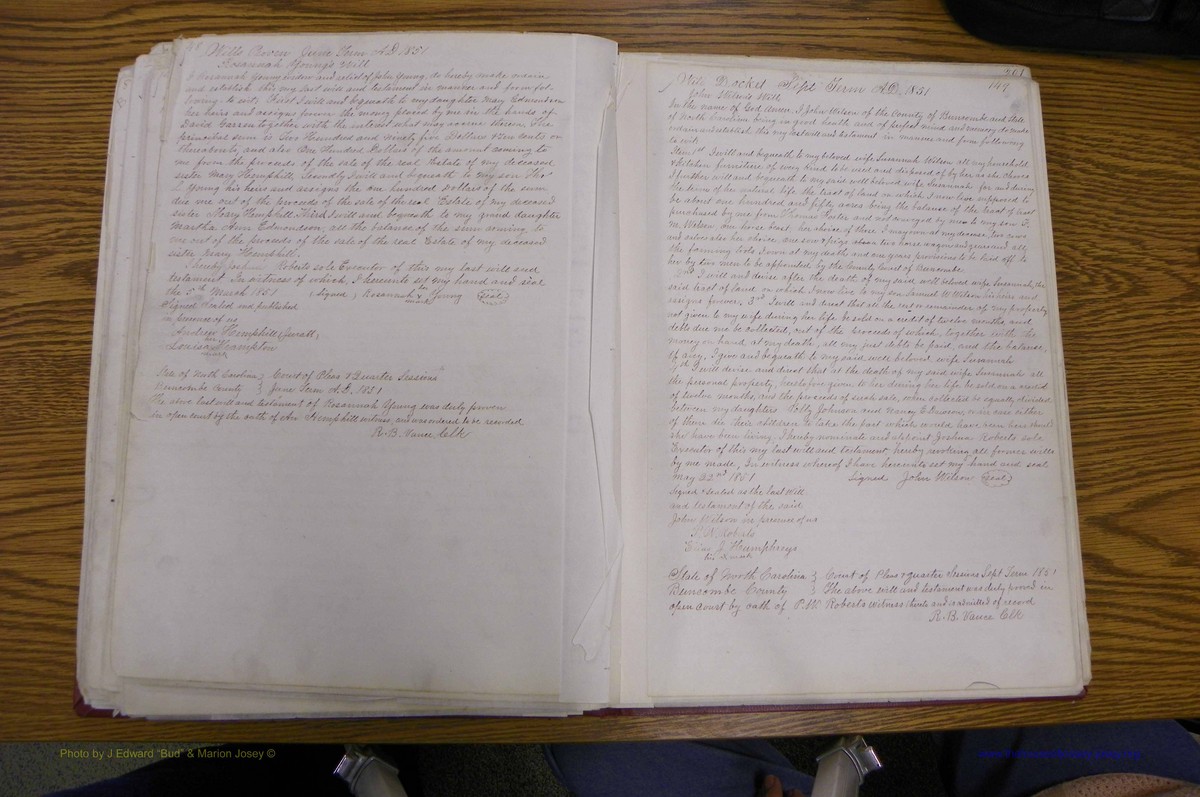 Wills Proven June Term A.D. 1851
Rosannah Young's Will
I Rosannah Young widow and relict of John Young, do hereby make ordain
and establish this my last will and testament in manner and form fol-
lowing to wit: First I will and bequeath to my daughter Mary Edmondson
her heirs and assigns forever the money placed by me in the hands of
David Garren together with the interest what may accrue thereon, The
principal sum is Two Hundred and Ninety five Dollars & Zero cents on
the, and also One Hundred Dollars of the amount coming to
me from the proceeds of the sale of the real Estate of my deceased
sister Mary Hemphill, Secondly I will and bequeath to my son Thos
L Young his heirs and assigns the one hundred Dollars of the sum
due me out of the proceeds of the sale of the real Estate of my deceased
sister Mary Hemphill. Third I will and bequeath to my grand daughter
Martha Ann Edmondson, all the balance of the sum coming to
me out of the proceeds of the sale of the real Estate of my deceased
sister Mary Hemphill.
I hereby Joshua Roberts sole Executor of this my last will and
testament. In witness of which, I hereunto set my hand and seal
the 5th March 185 (Signed) Rosannah Young (Seal)
mark
Signed, Sealed and published
in presence of us
Andrew Hemphill (Jurat),
Louisa Hampton
mark
State of North Carolina } Court of Pleas & Quarter Sessions
Buncombe County } June Term A.D. 1851
The above last will and testament of Rosannah Young was duly proven
in open court by the oath of An Hemphill witness, and was ordered to be recorded
R. B. Vance Clk
501
147
Will Docket Sept Term A.D. 1851
John Wilson's Will
In the name of God, Amen, I John Wilson of the County of Buncombe and State
of North Carolina being in good health and of perfect mind and memory do make
ordain and establish this my last will and testament in manner and form following
to wit:
Item 1st I will and bequeath to my beloved wife Susannah Wilson all my household
& Kitchen furniture of every kind to be used and disposed of by her as she chuses
I further will and bequeath to my said well beloved wife Susannah for and during
the term of her natural life the tract of land on which I now live supposed to
be about one hundred and fifty acres being the balance of the tract of land
purchased by me from Thomas Foster and not conveyed by me to my son S.
M. Wilson, one horse beast, her choice of those I may own at my decease, two cows
and calves also her choice, one sow & pigs also a two horse waggon and gears and all
the farming tools I own at my death, and one years provisions to be laid off to
her by two men to be appointed by the County Court of Buncombe
2nd I will and devise after the death of my said well beloved wife Susannah, the
said tract of land on which I now live to my son Samuel W Wilson his heirs and
assigns forever, 3rd I will and direct that all the rest & remainder of my property
not given to my wife during her life be sold on a credit of twelve months, and
debts due me be collected, out of the proceeds of which, together with the
money on hand at my death, all my just debts be paid, and the balance,
if any, I give and bequeath to my said well beloved wife Susannah
4th I will devise and direct that at the death of my said wife Susannah all
the personal property, heretofore given to her during her life be sold on a credit
of twelve months, and the proceeds of such sale, when collected be equally divided
between my daughters Polly Johnson and Nancy E, and in case either
of them die their children to take the part which would have been hers should
she have been living, I hereby nominate and appoint Joshua Roberts sole
Executor of this my last will and testament, hereby revoking all former wills
by me made, In witness whereof I have hereunto set my hand and seal
May 22nd 1851 Signed John Wilson (Seal)
Signed & sealed as the last Will
and testament of the said
John Wilson in presence of us
P. W. Roberts
J. Humphreys
his X mark
State of North Carolina } Court of Pleas & quarter Sessions Sept Term 1851
Buncombe County } The above will and testament was duly proved in
open Court by oath of P. W. Roberts witness thereto and is admitted of record
R. B. Vance Clk
Photo by J Edward "Bud" & Marion Josey ©